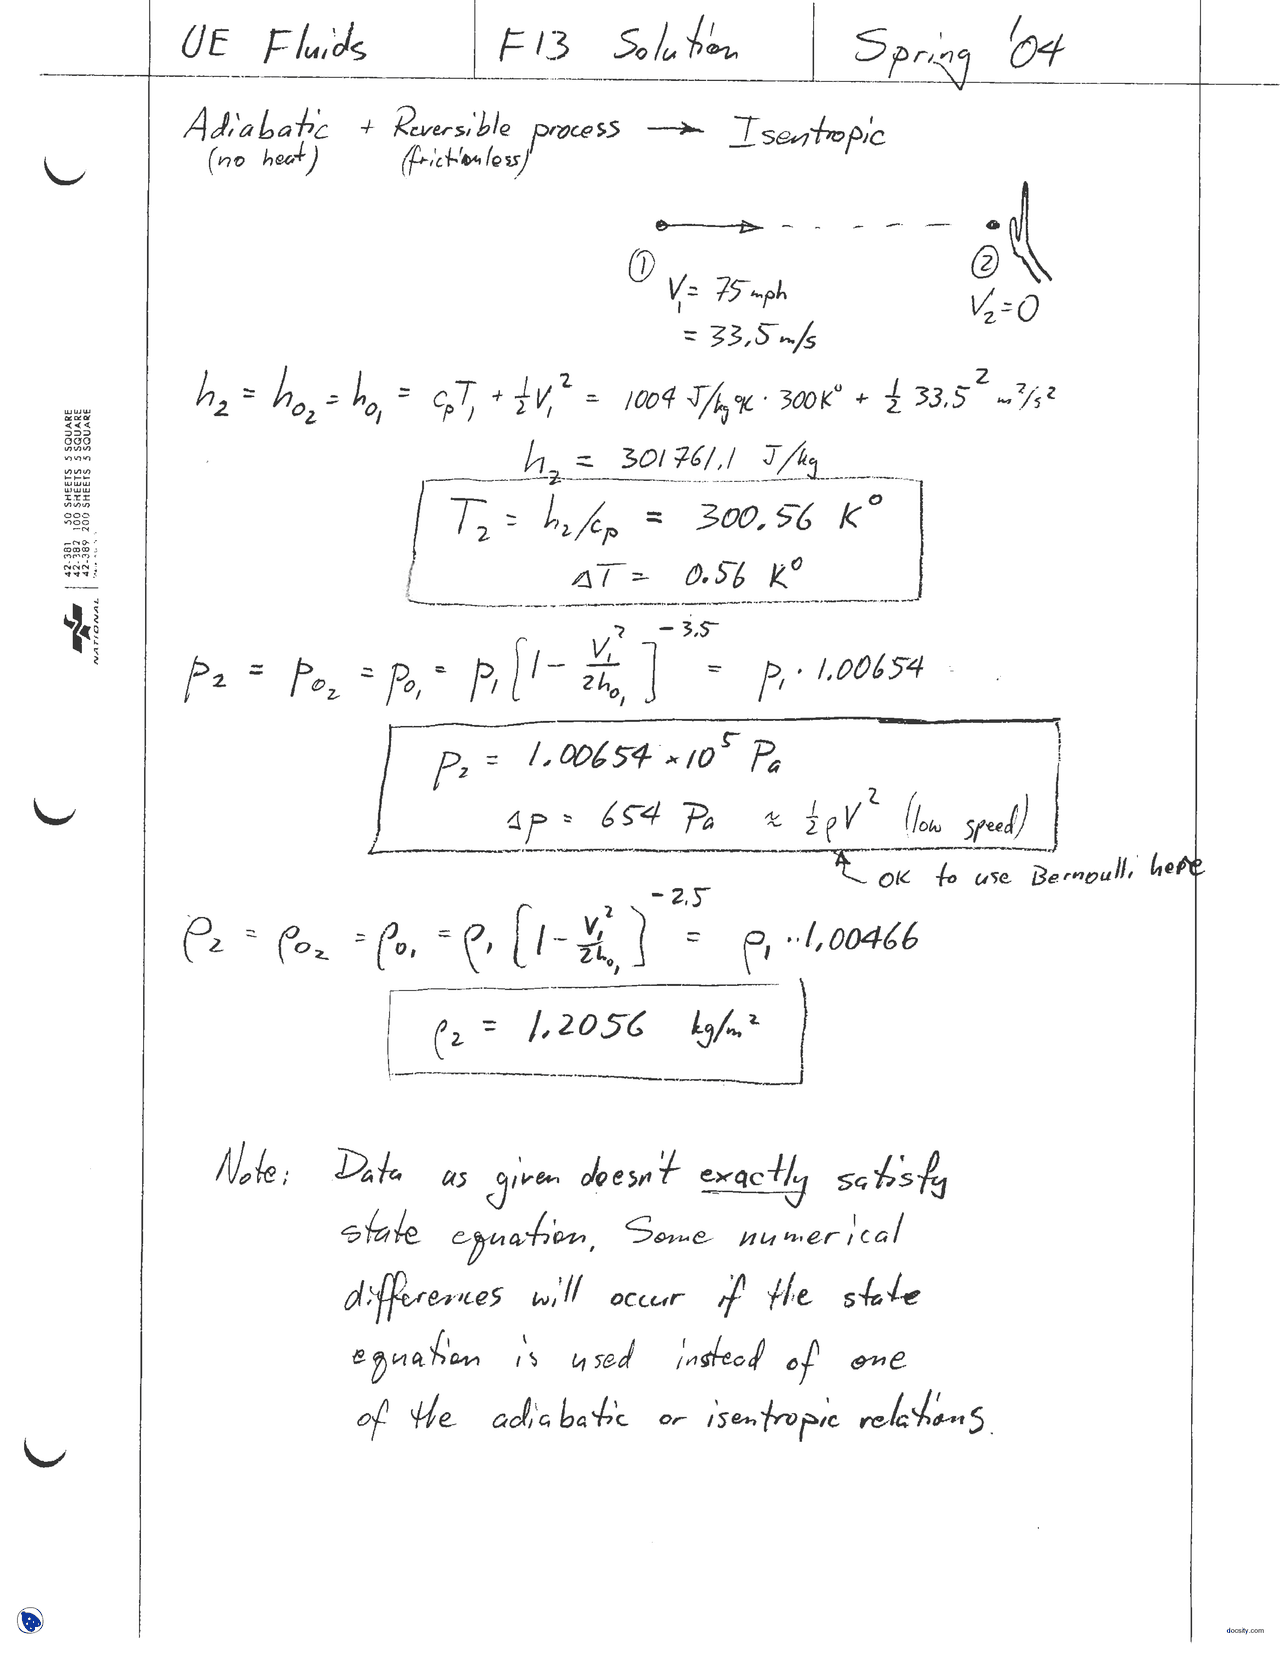 UE Fluids F13 Solution Spring '04
Adiabatic + Reversible process → Isentropic
(no heat) (frictionless)
① ②
V₁ = 75 mph V₂ = 0
= 33.5 m/s
h₂ = h₀₂ = h₀₁ = cₚT₁ + ½V₁² = 1004 J/kg°K · 300K° + ½ 33.5² m²/s²
h₂ = 301761.1 J/kg
T₂ = h₂/cₚ = 300.56 K°
ΔT = 0.56 K°
p₂ = p₀₂ = p₀₁ = p₁ [1 - V₁²/2h₀₁]^-3.5 = p₁ · 1.00654
p₂ = 1.00654 × 10⁵ Pa
Δp = 654 Pa ≈ ½ρV² (low speed)
OK to use Bernoulli here
ρ₂ = ρ₀₂ = ρ₀₁ = ρ₁ [1 - V₁²/2h₀₁]^-2.5 = ρ₁ · 1.00466
ρ₂ = 1.2056 kg/m²
Note: Data as given doesn't exactly satisfy
state equation. Some numerical
differences will occur if the state
equation is used instead of one
of the adiabatic or isentropic relations.
42-381 50 SHEETS 5 SQUARE
42-382 100 SHEETS 5 SQUARE
42-389 200 SHEETS 5 SQUARE
NATIONAL
docsity.com